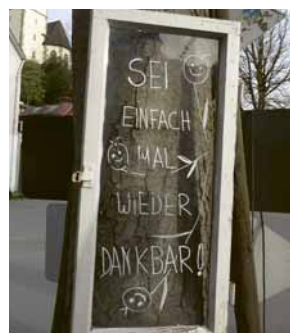 SEI
EINFACH
MAL
WIEDER
DANKBAR!